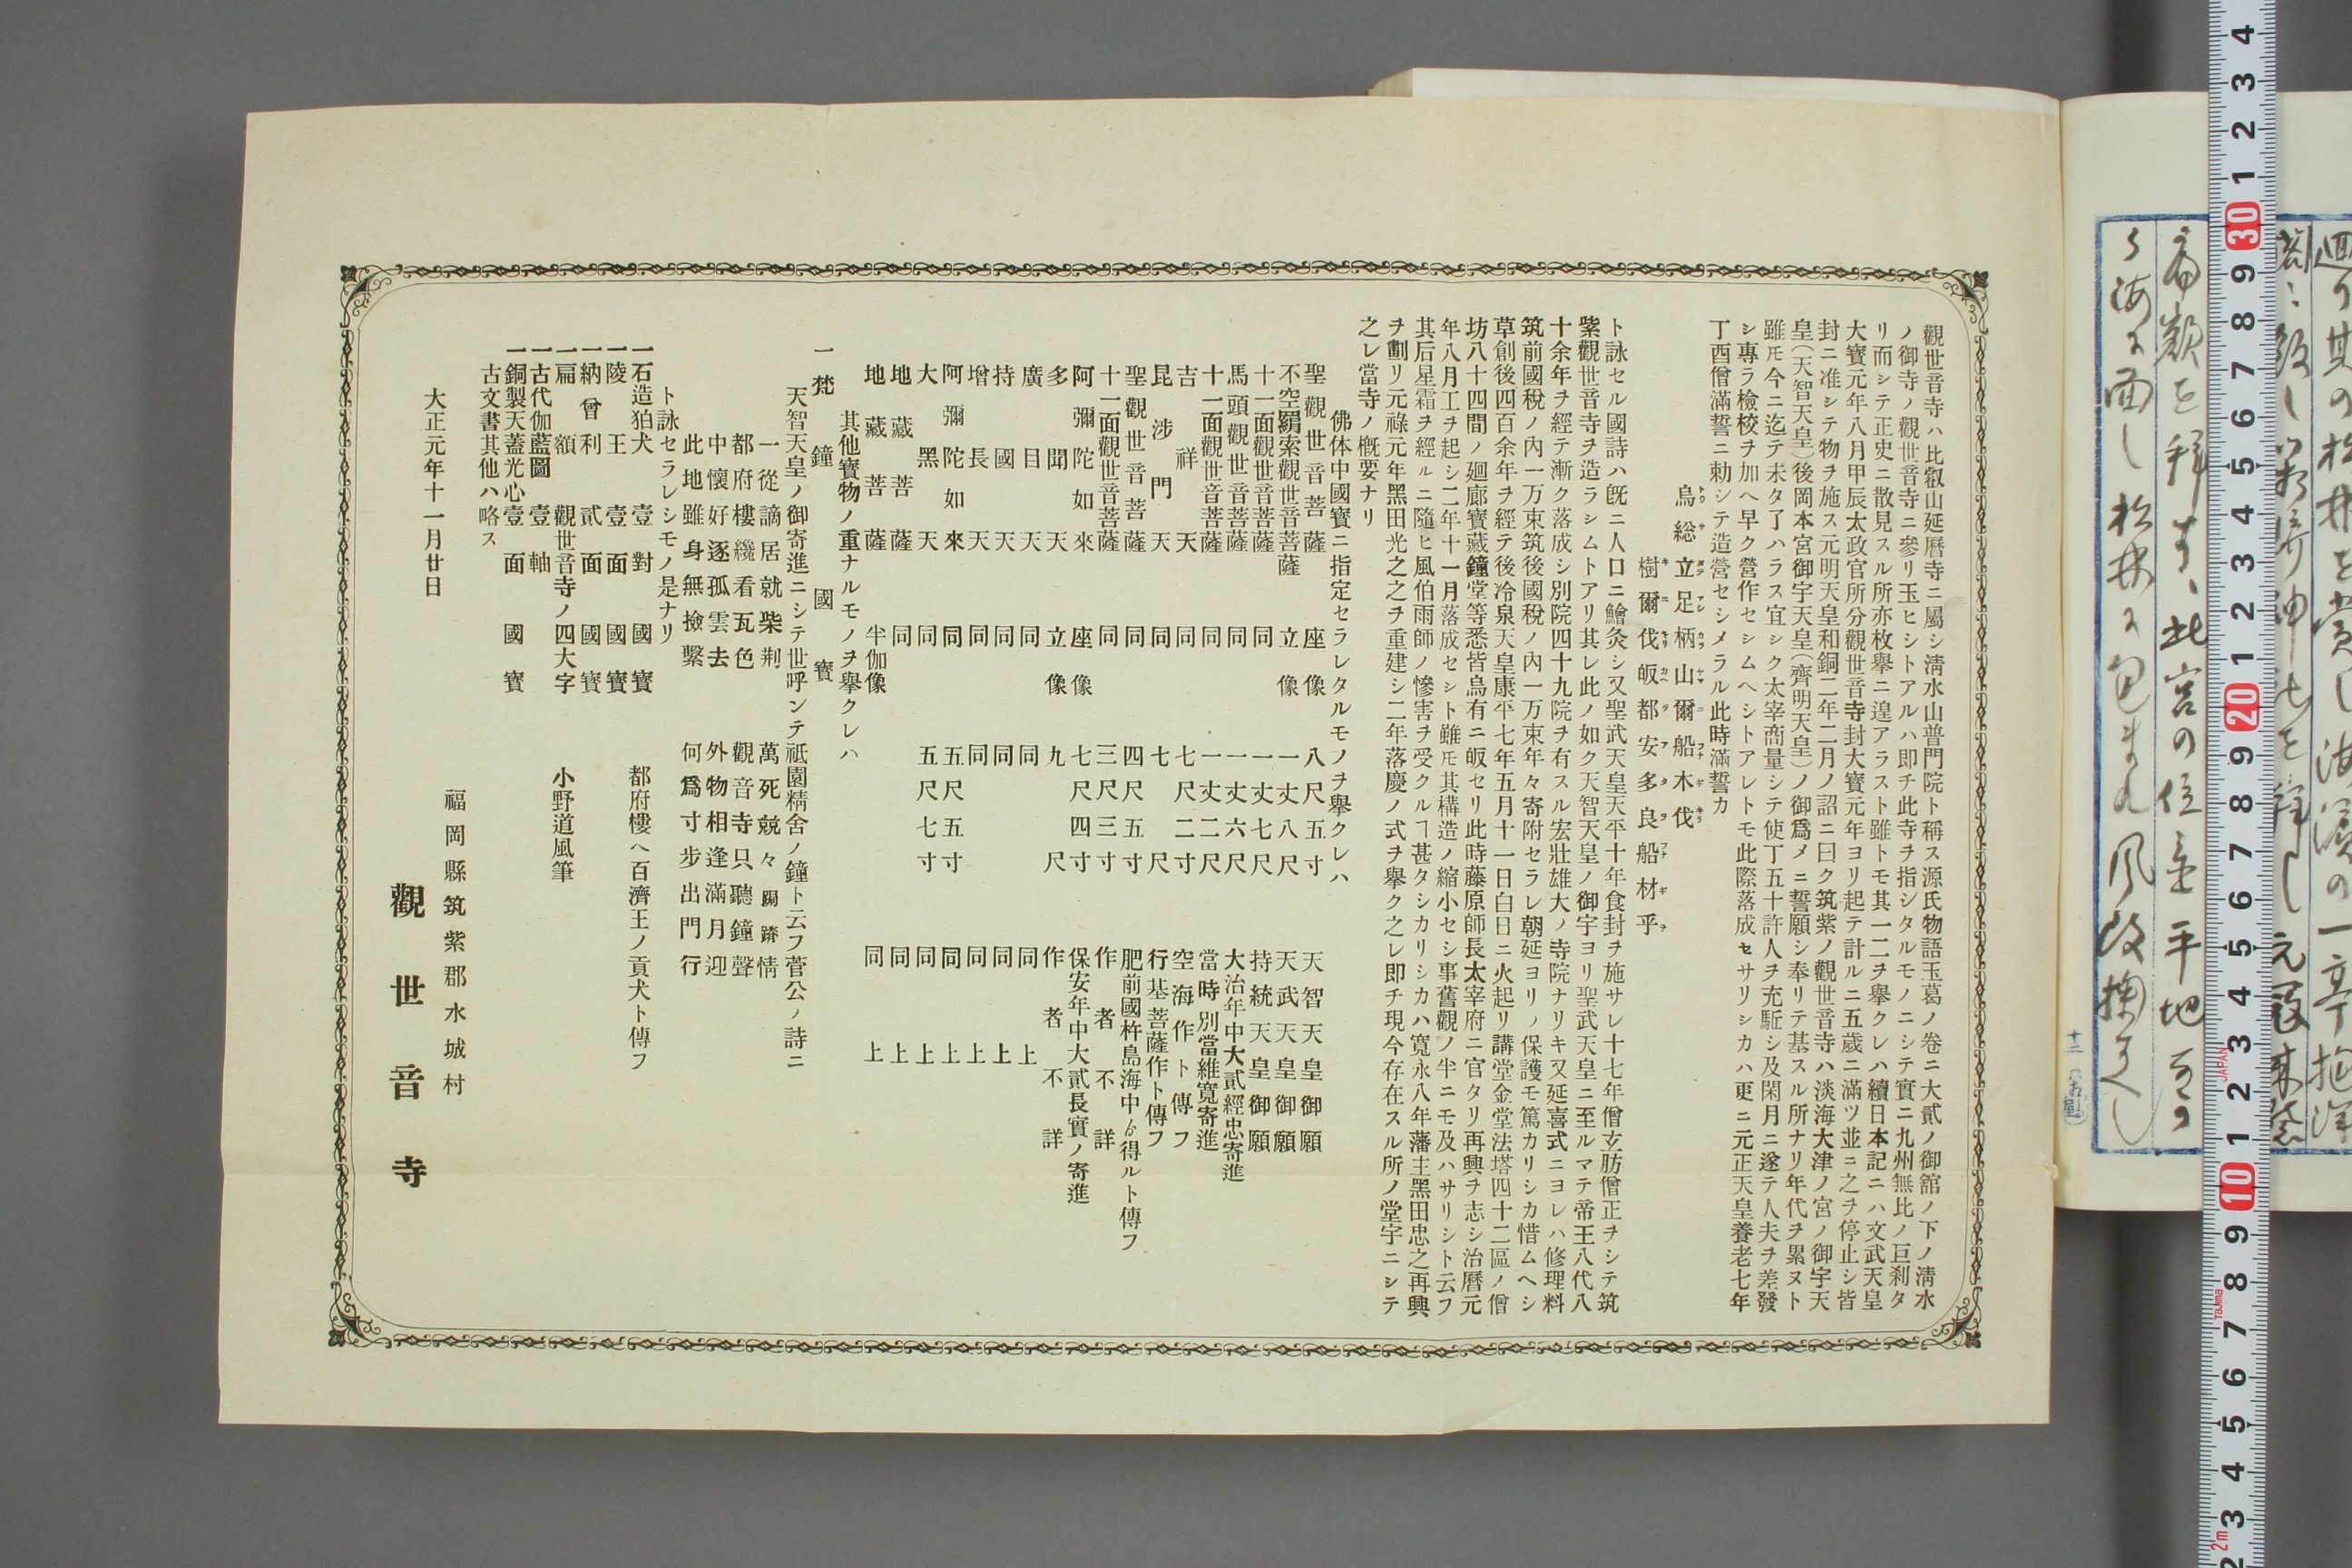 觀世音寺ハ比叡山延曆寺ニ屬シ淸水山普門院ト稱ス源氏物語玉葛ノ卷ニ大貳ノ御舘ノ下ノ淸水
ノ御寺ノ觀世音寺ニ參リ玉ヒシトアルハ卽チ此寺ヲ指シタルモノニシテ實ニ九州無比ノ巨刹タ
リ而シテ正史ニ散見スル所亦枚擧ニ遑アラスト雖トモ其一二ヲ擧クレハ續日本記ニハ文武天皇
大寶元年八月甲辰太政官所分觀世音寺封大寶元年ヨリ起テ計ルニ五歲ニ滿ツ並ニ之ヲ停止シ皆
封ニ准シテ物ヲ施ス元明天皇和銅二年二月ノ詔ニ曰ク筑紫ノ觀世音寺ハ淡海大津ノ宮ノ御宇天
皇(天智天皇)後岡本宮御宇天皇(齊明天皇)ノ御爲メニ誓願シ奉リテ基スル所ナリ年代ヲ累ヌト
雖モ今ニ迄テ未タ了ハラス宜シク太宰商量シテ使丁五十許人ヲ充駈シ及閑月ニ遂テ人夫ヲ差發
シ專ラ檢校ヲ加ヘ早ク營作セシムヘシトアレトモ此際落成セサリシカハ更ニ元正天皇養老七年
丁酉僧滿誓ニ勅シテ造營セシメラル此時滿誓カ
鳥総立足柄山爾船木伐
樹爾伐皈都安多良船材乎
ト詠セル國詩ハ旣ニ人口ニ鱠灸シ又聖武天皇天平十年食封ヲ施サレ十七年僧玄肪僧正ヲシテ筑
紫觀世音寺ヲ造ラシムトアリ其レ此ノ如ク天智天皇ノ御宇ヨリ聖武天皇ニ至ルマテ帝王八代八
十余年ヲ經テ漸ク落成シ別院四十九院ヲ有スル宏壯雄大ノ寺院ナリキ又延喜式ニヨレハ修理料
筑前國稅ノ內一万束筑後國稅ノ內一万束年々寄附セラレ朝延ヨリノ保護モ篤カリシカ惜ムヘシ
草創後四百余年ヲ經テ後冷泉天皇康平七年五月十一日白日ニ火起リ講堂金堂法塔四十二區ノ僧
坊八十四間ノ廻廊寶藏鐘堂等悉皆烏有ニ皈セリ此時藤原師長太宰府ニ官タリ再興ヲ志シ治曆元
年八月工ヲ起シ二年十一月落成セシト雖モ其構造ノ縮小セシ事舊觀ノ半ニモ及ハサリシト云フ
其后星霜ヲ經ルニ隨ヒ風伯雨師ノ慘害ヲ受クルヿ甚タシカリシカハ寬永八年藩主黑田忠之再興
ヲ劃リ元祿元年黑田光之之ヲ重建シ二年落慶ノ式ヲ擧ク之レ卽チ現今存在スル所ノ堂宇ニシテ
之レ當寺ノ槪要ナリ
佛体中國寶ニ指定セラレタルモノヲ擧クレハ
聖觀世音菩薩 座像 八尺五寸 天智天皇御願
不空羂索觀世音菩薩 立像 一丈八尺 天武天皇御願
十一面觀世音菩薩 同 一丈七尺 持統天皇御願
馬頭觀世音菩薩 同 一丈六尺 大治年中大貳經忠寄進
十一面觀世音菩薩 同 一丈二尺 當時別當維寬寄進
吉祥天 同 七尺二寸 空海作ト傳フ
昆沙門天 同 七尺 行基菩薩作ト傳フ
聖觀世音菩薩 同 四尺五寸 肥前國杵島海中ゟ得ルト傳フ
十一面觀世音菩薩 同 三尺三寸 作者不詳
阿彌陀如來 座像 七尺四寸 保安年中大貳長實ノ寄進
多聞天 立像 九尺 作者不詳
廣目天 同 同 同上
持國天 同 同 同上
增長天 同 同 同上
阿彌陀如來 同 五尺五寸 同上
大黑天 同 五尺七寸 同上
地藏菩薩 同 同上
地藏菩薩 半伽像 同上
其他寶物ノ重ナルモノヲ擧クレハ
一梵鐘 國寶
天智天皇ノ御寄進ニシテ世呼ンテ祇園精舍ノ鐘ト云フ菅公ノ詩ニ
一從謫居就柴荆 萬死兢々跼蹐情
都府樓纔看瓦色 觀音寺只聽鐘聲
中懷好逐孤雲去 外物相逢滿月迎
此地雖身無撿繫 何爲寸步出門行
ト詠セラレシモノ是ナリ
一石造狛犬 壹對 國寶 都府樓ヘ百濟王ノ貢犬ト傳フ
一陵王 壹面 國寶
一納曾利 貳面 國寶
一扁額 觀世音寺ノ四大字 小野道風筆
一古代伽藍圖 壹軸
一銅製天蓋光心 壹面 國寶
古文書其他ハ略ス
大正元年十一月廿日
福岡縣筑紫郡水城村
觀世音寺